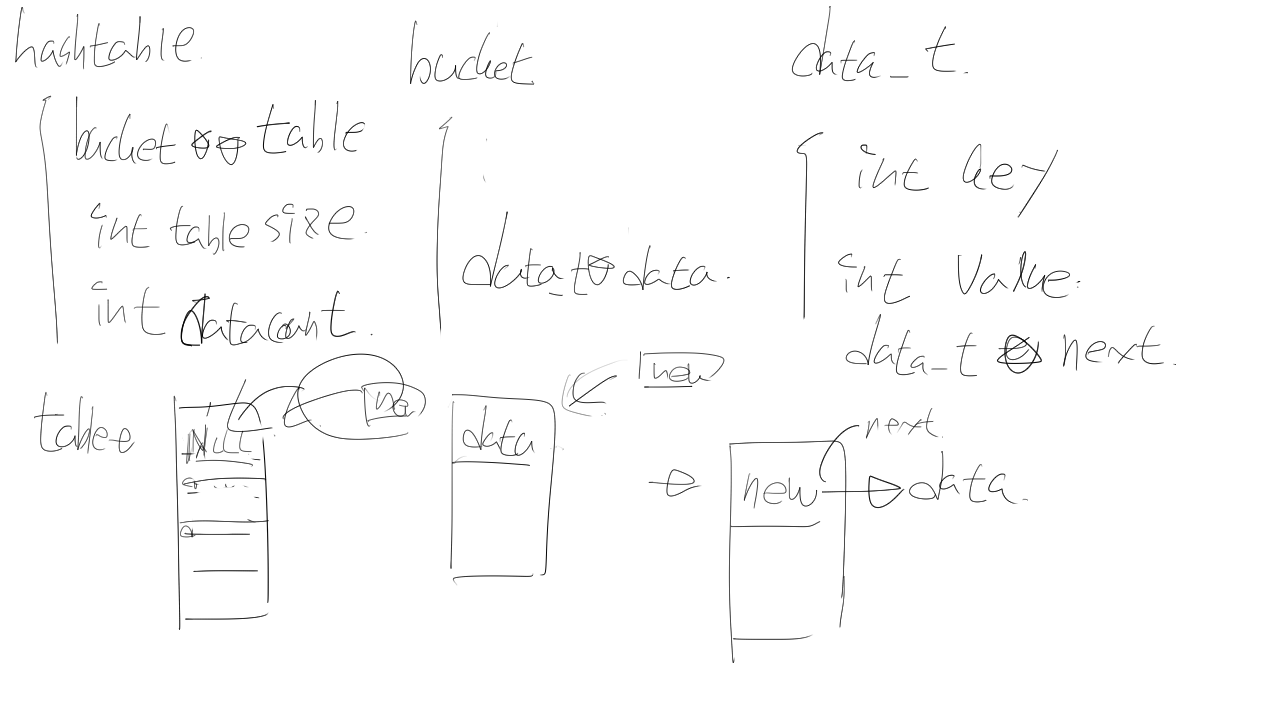 hashtable.
bucket ** table
int table size.
int datacount.
bucket
data_t * data.
data_t.
int key
int value.
data_t * next.
table
NULL
data
new
new
next.
data.